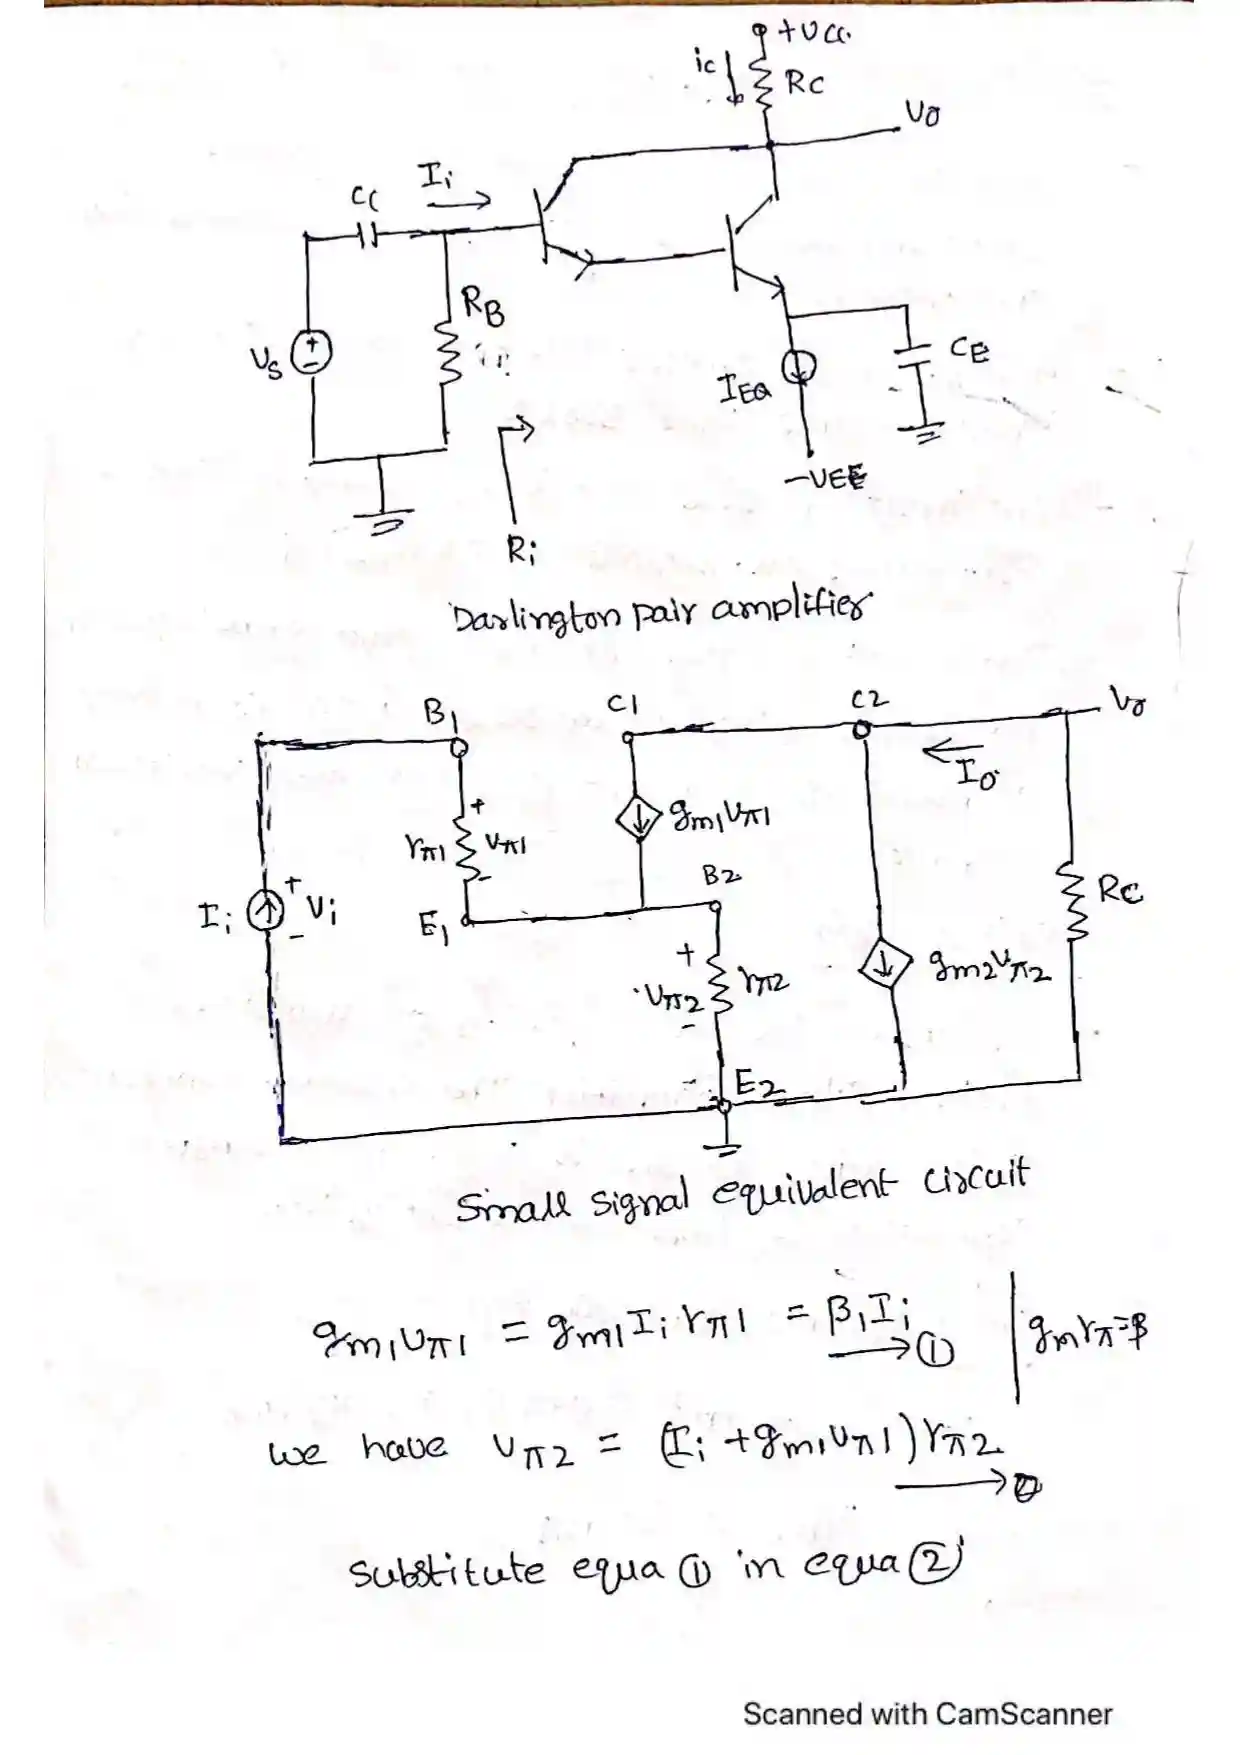 +VCC
ic
RC
Vo
CC
Ii
RB
Vs
IEQ
CE
-VEE
Ri
Darlington pair amplifier
B1
C1
C2
Vo
Io
+
rπ1
Vπ1
-
gm1Vπ1
RC
B2
Ii
+
Vi
-
E1
+
Vπ2
-
rπ2
gm2Vπ2
E2
Small signal equivalent circuit
gm1Vπ1 = gm1 Ii rπ1 = β1Ii → ① | gmrπ=β
we have Vπ2 = (Ii + gm1Vπ1) rπ2 → ②
substitute equa ① in equa ②
Scanned with CamScanner